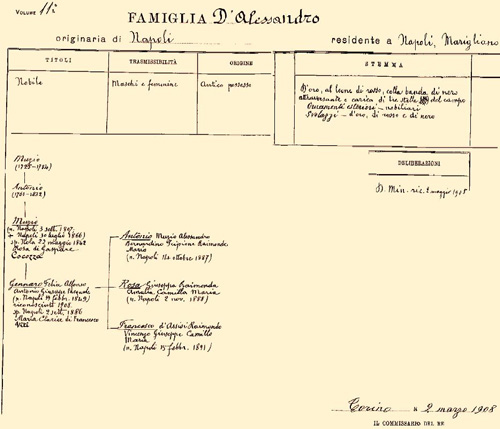 VOLUME 11º
FAMIGLIA D'Alessandro
originaria di Napoli residente a Napoli, Marigliano
TITOLI TRASMISSIBILITÀ ORIGINE STEMMA
Nobile Maschi e femmine Antico possesso
D'oro, al leone di rosso, colla banda di nero
attraversante e carica di tre stelle del campo
Ornamenti esteriori – nobiliari
Svolazzi – d'oro, di rosso e di nero
DELIBERAZIONI
D. Min. ric. 2 maggio 1908
Muzio
Antonio
Muzio
(n. Napoli 3 sett. 1807.
+ Napoli 30 luglio 1866)
sp. Nola 27 maggio 1842
Rosa di Gaspare
Cocozza
Gennaro Felice Alfonso
Antonio Giuseppe Pasquale
(n. Napoli 14 febbr. 1849)
riconosciuto 1908.
sp. Napoli 2 sett. 1886
Maria Clarice di Francesco
Viti
Antonio Muzio Alessandro
Bernardino Scipione Raimondo
Mario
(n. Napoli 11 ottobre 1887)
Rosa Giuseppa Raimonda
Amalia Camilla Maria
(n. Napoli 2 nov. 1888)
Francesco d'Assisi Raimondo
Vincenzo Giuseppe Camillo
Maria
(n. Napoli 15 febbr. 1891)
Torino li 2 marzo 1908
IL COMMISSARIO DEL RE